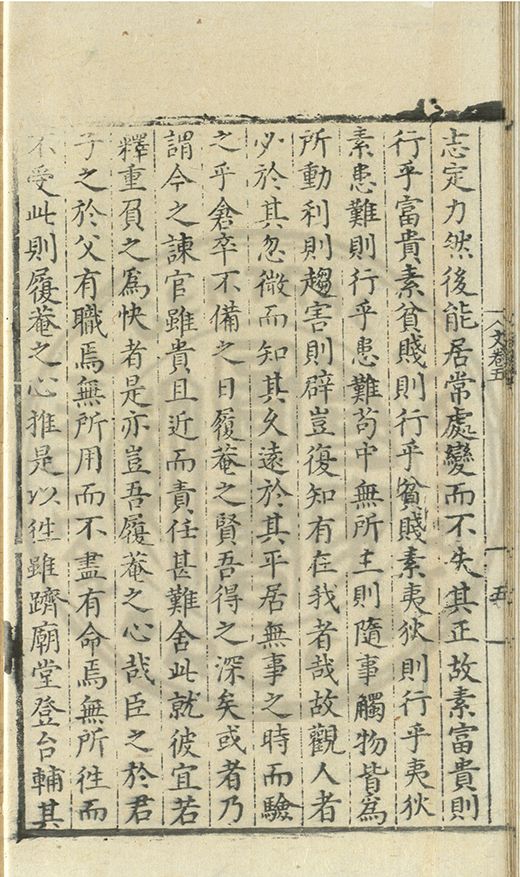 文卷五
五
志定力然後能居常處變而不失其正故素富貴則
行乎富貴素貧賤則行乎貧賤素夷狄則行乎夷狄
素患難則行乎患難苟中無所主則隨事觸物皆為
所動利則趨害則辟豈復知有在我者哉故觀人者
必於其忽微而知其久遠於其平居無事之時而驗
之乎倉卒不備之日履菴之賢吾得之深矣或者乃
謂今之諫官雖貴且近而責任甚難舍此就彼宜若
釋重負之爲快者是亦豈吾履菴之心哉臣之於君
子之於父有職焉無所用而不盡有命焉無所徃而
不受此則履菴之心推是以徃雖躋廟堂登台輔其